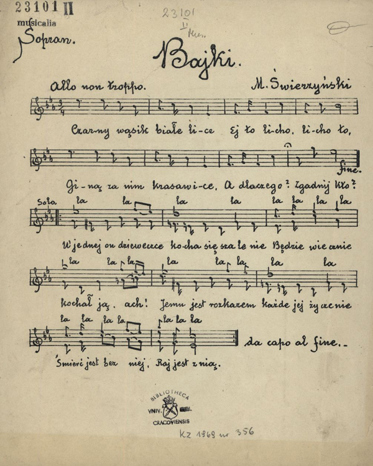 23101 II
musicalia
23101
II
Sopran.
Bajki.
Allo non troppo.
M. Świerzyński
Czarny wąsik białe li-ce Ej to li-cho, li-cho to,
fine.
Gi-ną za nim krasawi-ce, A dlaczego? Zgadnij kto?
Solo la la la la la la la la
W jednej on dziewczce kocha się szale nie Będzie wiecznie
la la la la la la la
kochał ją, ach! Jemu jest rozkazem każde jej życzenie
la la la la la la la
da capo al fine.
Śmierć jest bez niej, Raj jest z nią.
BIBLIOTHECA
VNIV. IAGELL.
CRACOVIENSIS
KZ 1969 nr 356